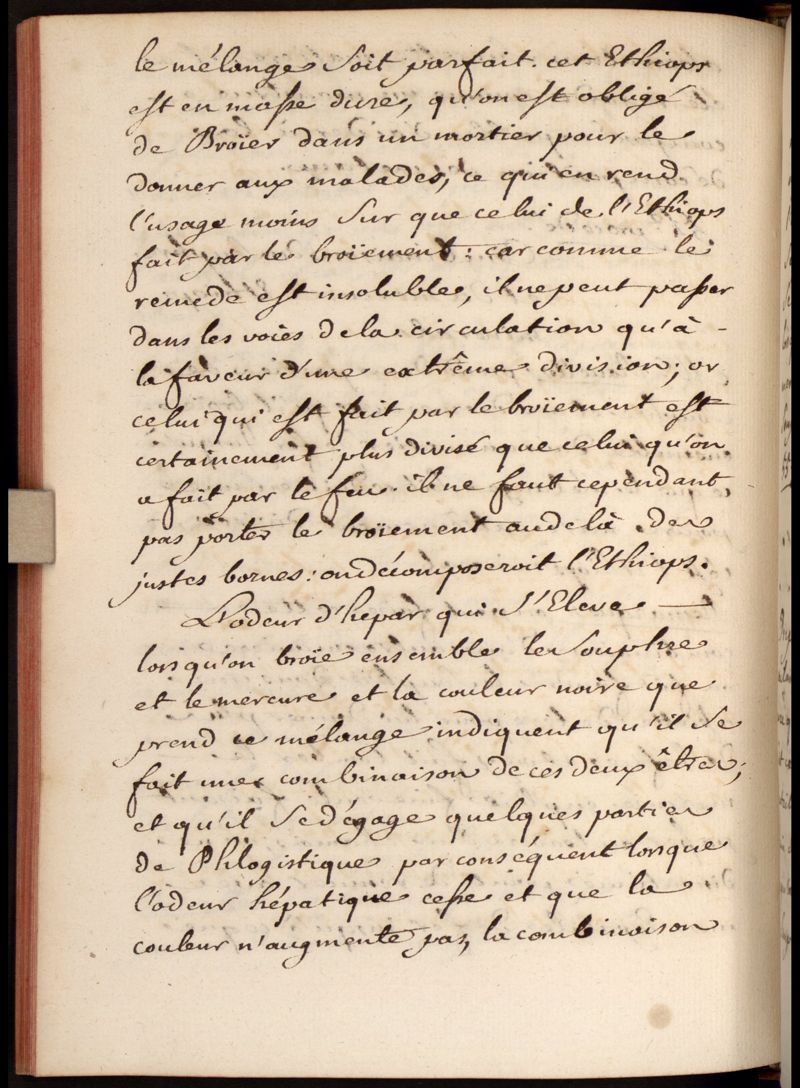 le mélange soit parfait. cet Ethiops
est en masse dure, qu'on est obligé
de Broïer dans un mortier pour le
donner aux malades, ce qui en rend
l'usage moins sur que celui de l'Ethiops
fait par le broïement : car comme le
remede est insoluble, il ne peut passer
dans les voies de la circulation qu'à -
la faveur d'une extrême division; or
celui qui est fait par le broïement est
certainement plus divisé que celui qu'on
a fait par le feu. il ne faut cependant
pas porter le broïement audelà des
justes bornes: on décomposeroit l'Ethiops.
L'odeur d'hepar qui s'Eleve —
lorsqu'on broïe ensemble le Souphre
et le mercure et la couleur noire que
prend ce mélange indiquent qu'il se
fait une combinaison de ces deux êtres;
et qu'il se dégage quelques parties
de Phlogistique par conséquent lorsque
l'odeur hépatique cesse et que la
couleur n'augmente pas, la combinaison